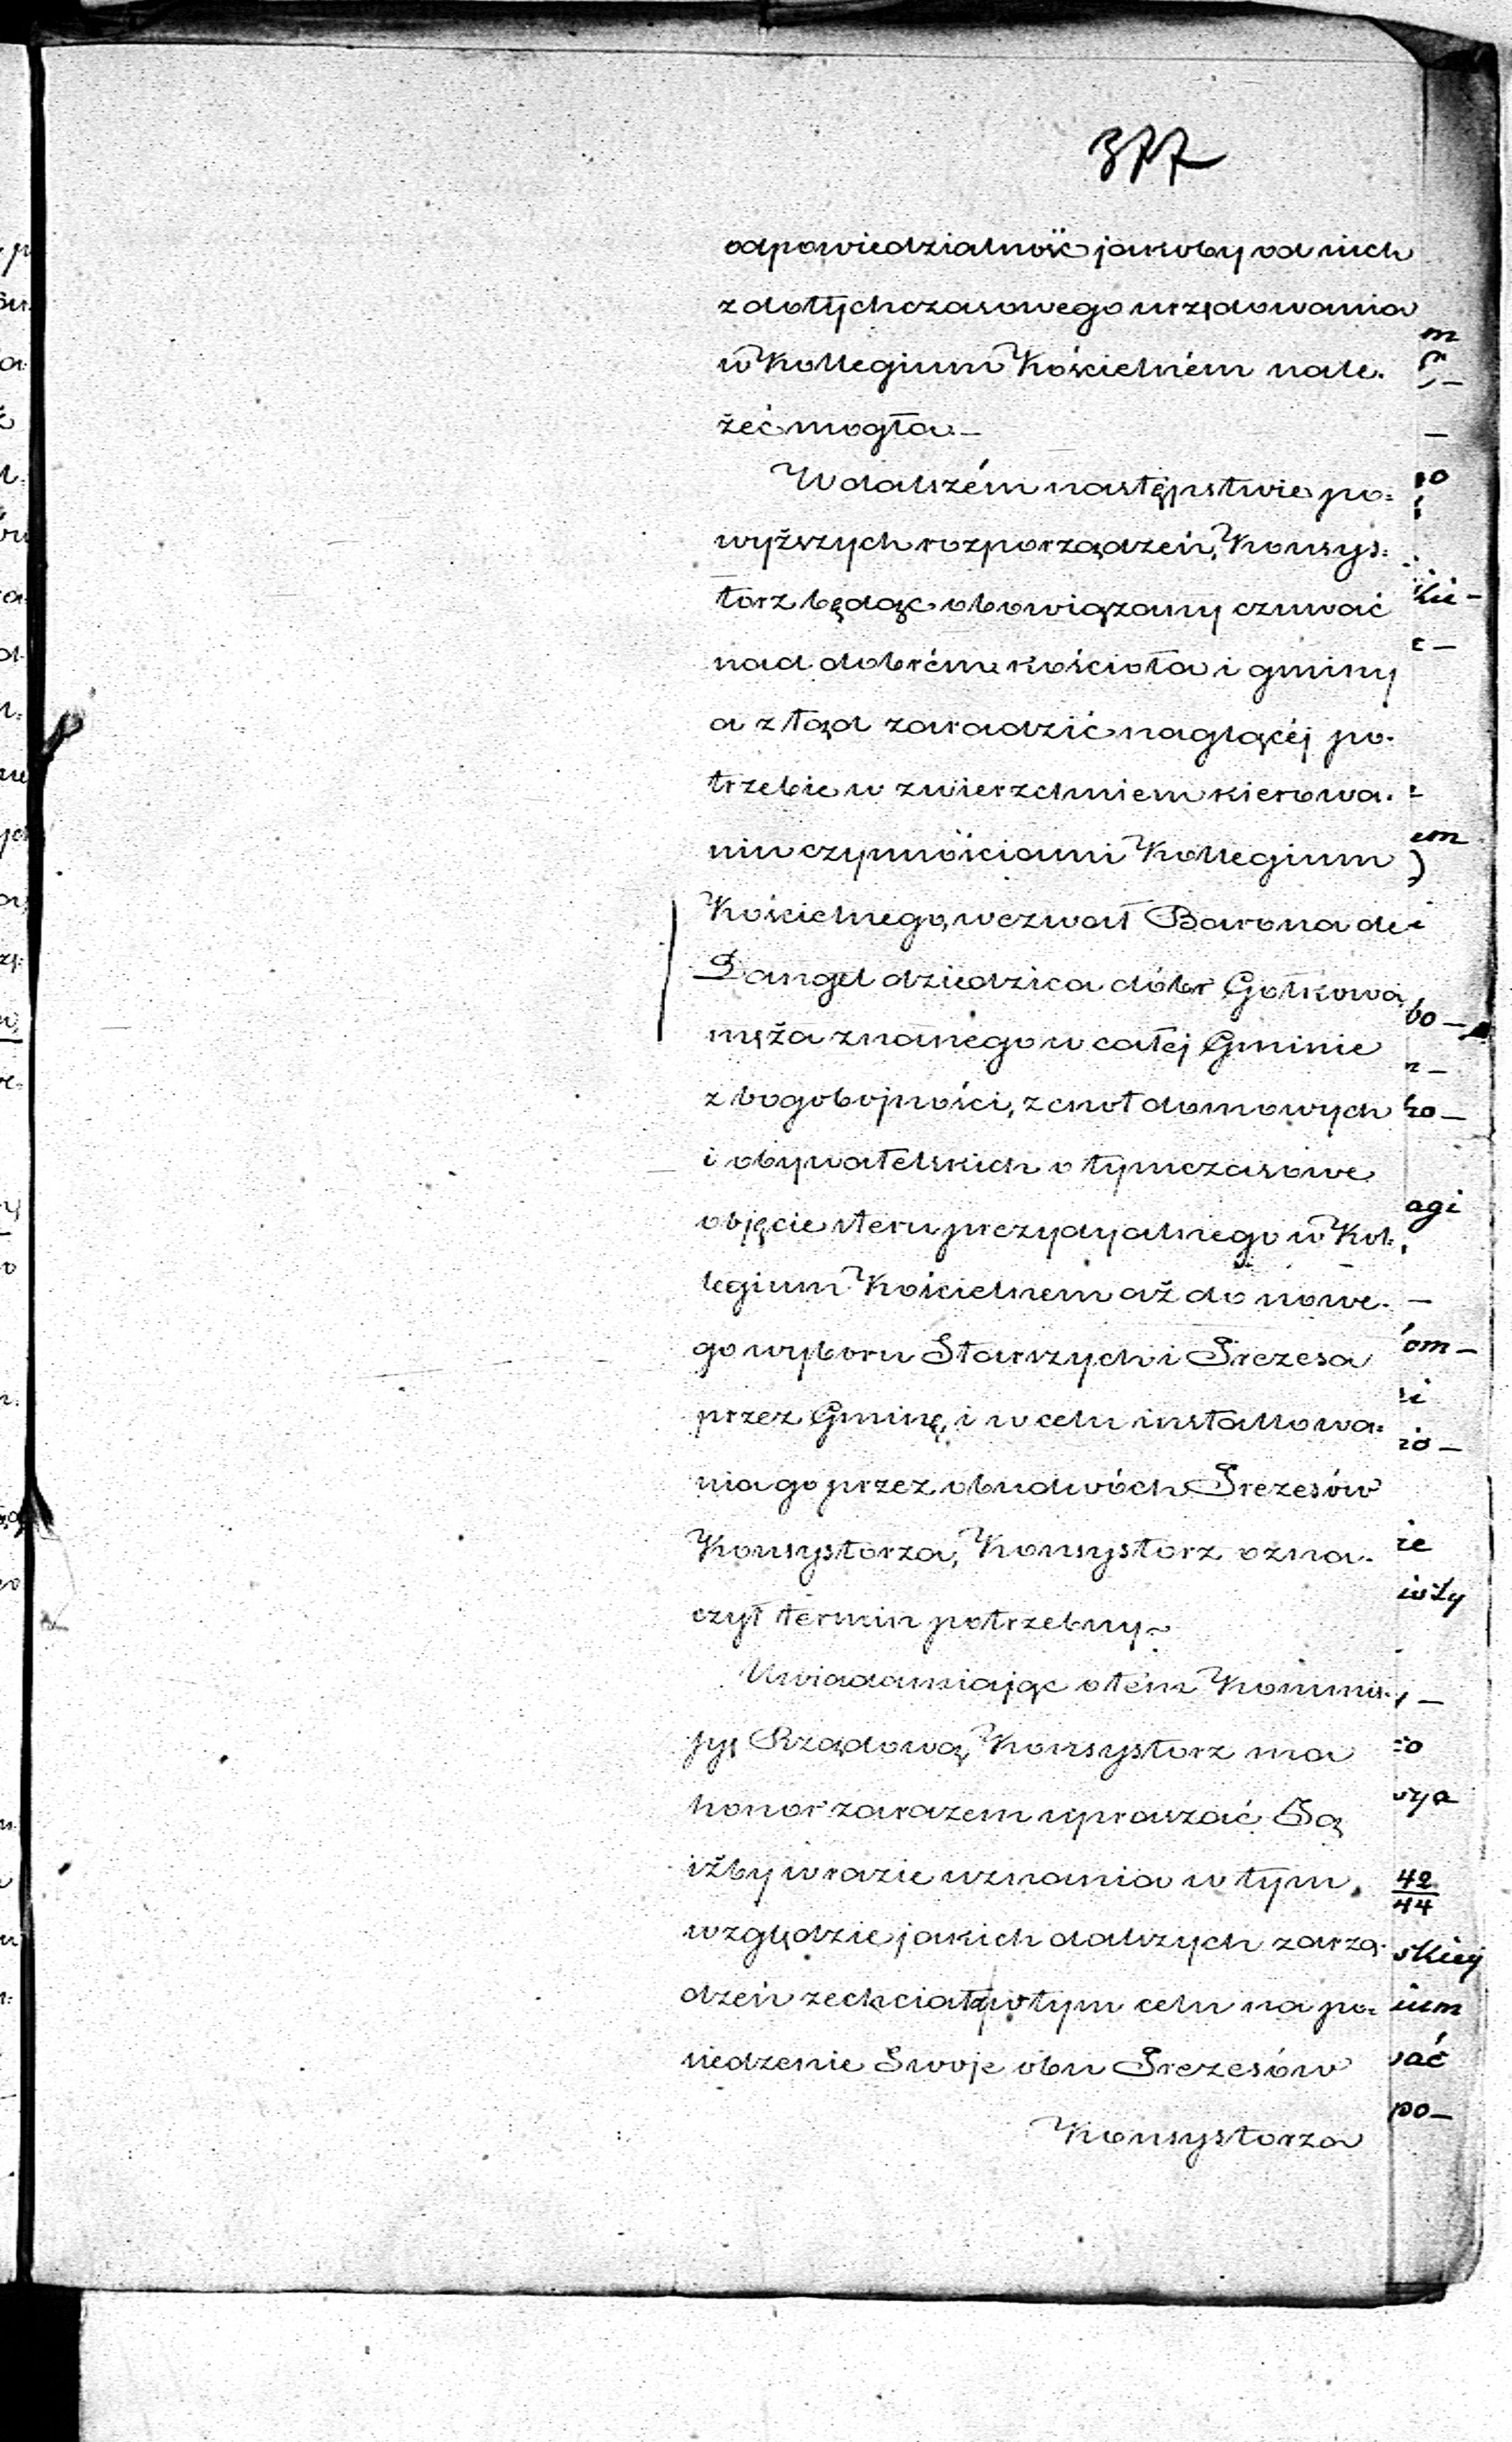 377
odpowiedzialność jakoby od nich
z dotychczasowego urzędowania
w Kollegium Kościelném nale-
żeć mogła. —
W dalszém następstwie po-
wyższych rozporządzeń, Konsys-
torz będąc obowiązany czuwać
nad dobrém kościoła i gminy
a ztąd zaradzić naglącéj po-
trzebie w zwierzchniem kierowa-
niu czynnościami Kollegium
Kościelnego, wezwał Barona de
Dangel dziedzica dóbr Gołkowa,
męża znanego w całej Gminie
z bogobojności, z cnot domowych
i obywatelskich o tymczasowe
objęcie steru prezydyalnego w Kol-
legium Kościelnem aż do nowe-
go wyboru Starszych i Prezesa
przez Gminę, i w celu installowa-
nia go przez obudwóch Prezesów
Konsystorza, Konsystorz ozna-
czył termin potrzebny. ~
Uwiadamiając o tém Kommis-
syę Rządową, Konsystorz ma
honor zarazem upraszać Ją
iżby w razie uznania w tym
względzie jakich dalszych zarzą-
dzeń zechciała w tym celu na po-
siedzenie Swoje obu Prezesów
Konsystorza
m
kie -
c -
em
bo -
n -
ho -
agi
om -
io -
że
iöty
szja
42
44
skiej
ium
sać
po -